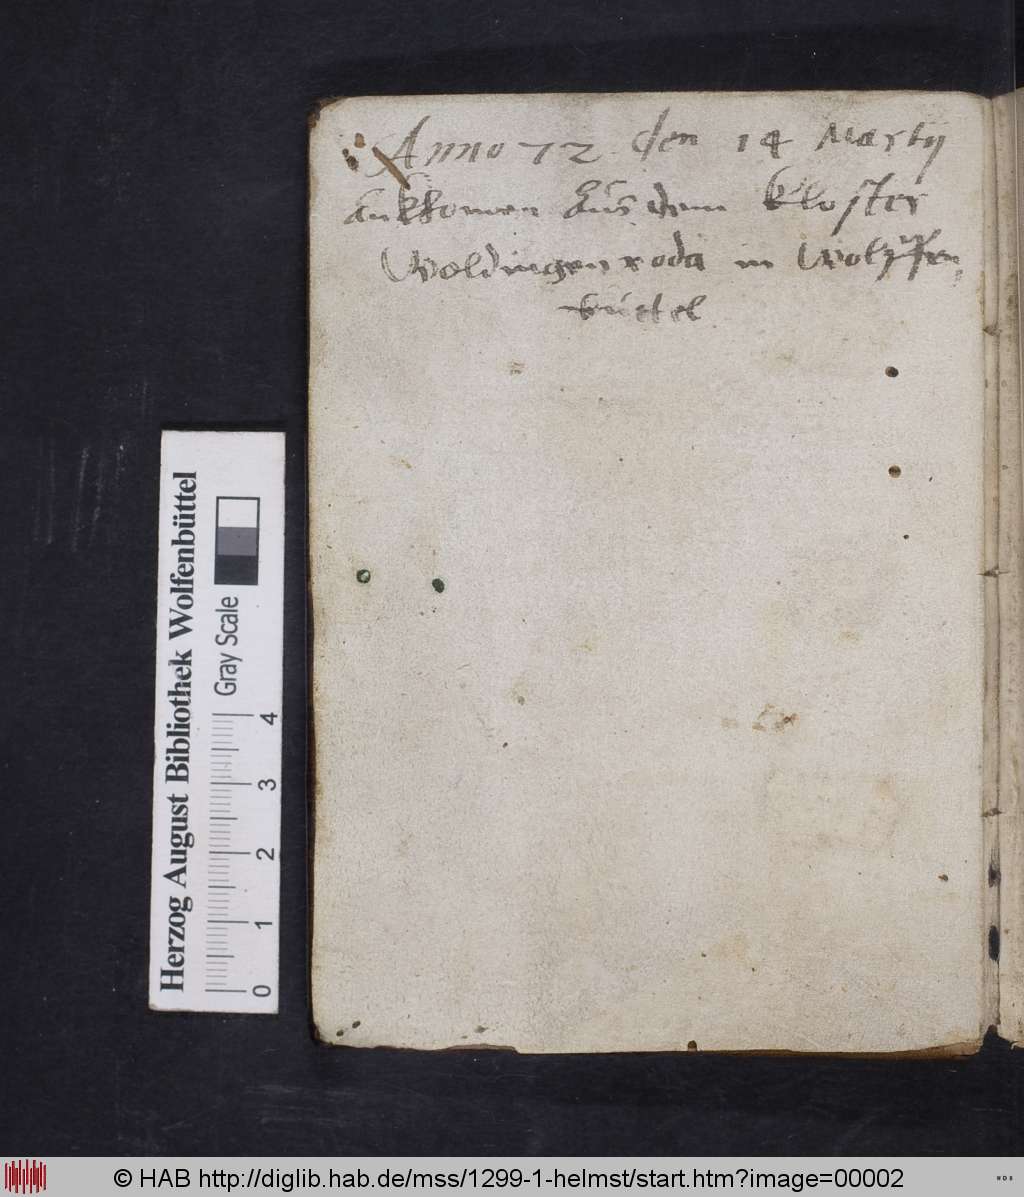 Anno 72 den 14 Martij
ankkomen aus dem Kloster
Woldingenroda in Wolffen,
buettel
Herzog August Bibliothek Wolfenbüttel
Gray Scale
0 1 2 3 4
© HAB http://diglib.hab.de/mss/1299-1-helmst/start.htm?image=00002